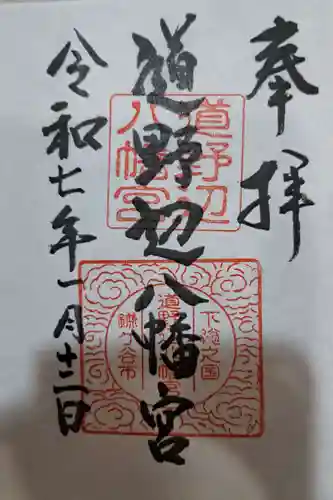 奉拝
道野辺八幡宮
令和七年一月十三日
道野辺
八幡宮
下総之国
道野辺八幡宮
鎌ケ谷市